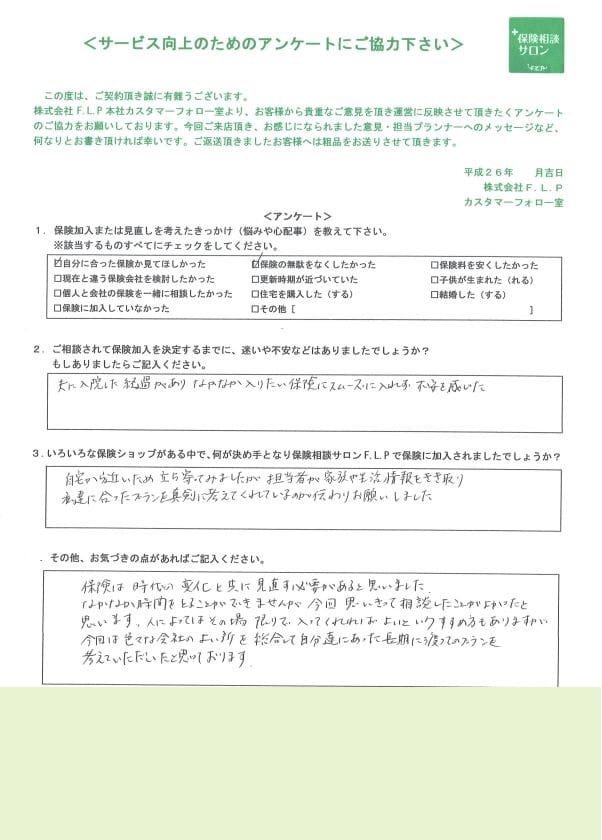 ＜サービス向上のためのアンケートにご協力下さい＞
保険相談
サロン
F.L.P
この度は、ご契約頂き誠に有難うございます。
株式会社F.L.P本社カスタマーフォロー室より、お客様から貴重なご意見を頂き運営に反映させて頂きたくアンケート
のご協力をお願いしております。今回ご来店頂き、お感じになられました意見・担当プランナーへのメッセージなど、
何なりとお書き頂ければ幸いです。ご返送頂きましたお客様へは粗品をお送りさせて頂きます。
平成２６年　　月吉日
株式会社Ｆ.Ｌ.Ｐ
カスタマーフォロー室
＜アンケート＞
１．保険加入または見直しを考えたきっかけ（悩みや心配事）を教えて下さい。
※該当するものすべてにチェックをしてください。
☑自分に合った保険か見てほしかった　☑保険の無駄をなくしたかった　□保険料を安くしたかった
□現在と違う保険会社を検討したかった　□更新時期が近づいていた　□子供が生まれた（れる）
□個人と会社の保険を一緒に相談したかった　□住宅を購入した（する）　□結婚した（する）
□保険に加入していなかった　□その他［　　　］
２．ご相談されて保険加入を決定するまでに、迷いや不安などはありましたでしょうか？
もしありましたらご記入ください。
夫に入院した経過があり なかなか入りたい保険にスムーズに入れず 不安を感じた
３.いろいろな保険ショップがある中で、何が決め手となり保険相談サロンF.L.Pで保険に加入されましたでしょうか？
自宅から近いため 立ち寄ってみましたが 担当者が 家族や生活情報をきき取り
私達に合ったプランを真剣に考えてくれているのが伝わりお願いしました
．その他、お気づきの点があればご記入ください。
保険は 時代の変化と共に見直す必要があると思いました.
なかなか時間をとることができませんが 今回 思いきって相談したことがよかったと
思います. 人によってはその場限りで 入ってくれればよいというすすめ方もありますが
今回は色々な会社のよい所を 総合して自分達にあった長期に渡ってのプランを
考えていただいたと思っております.